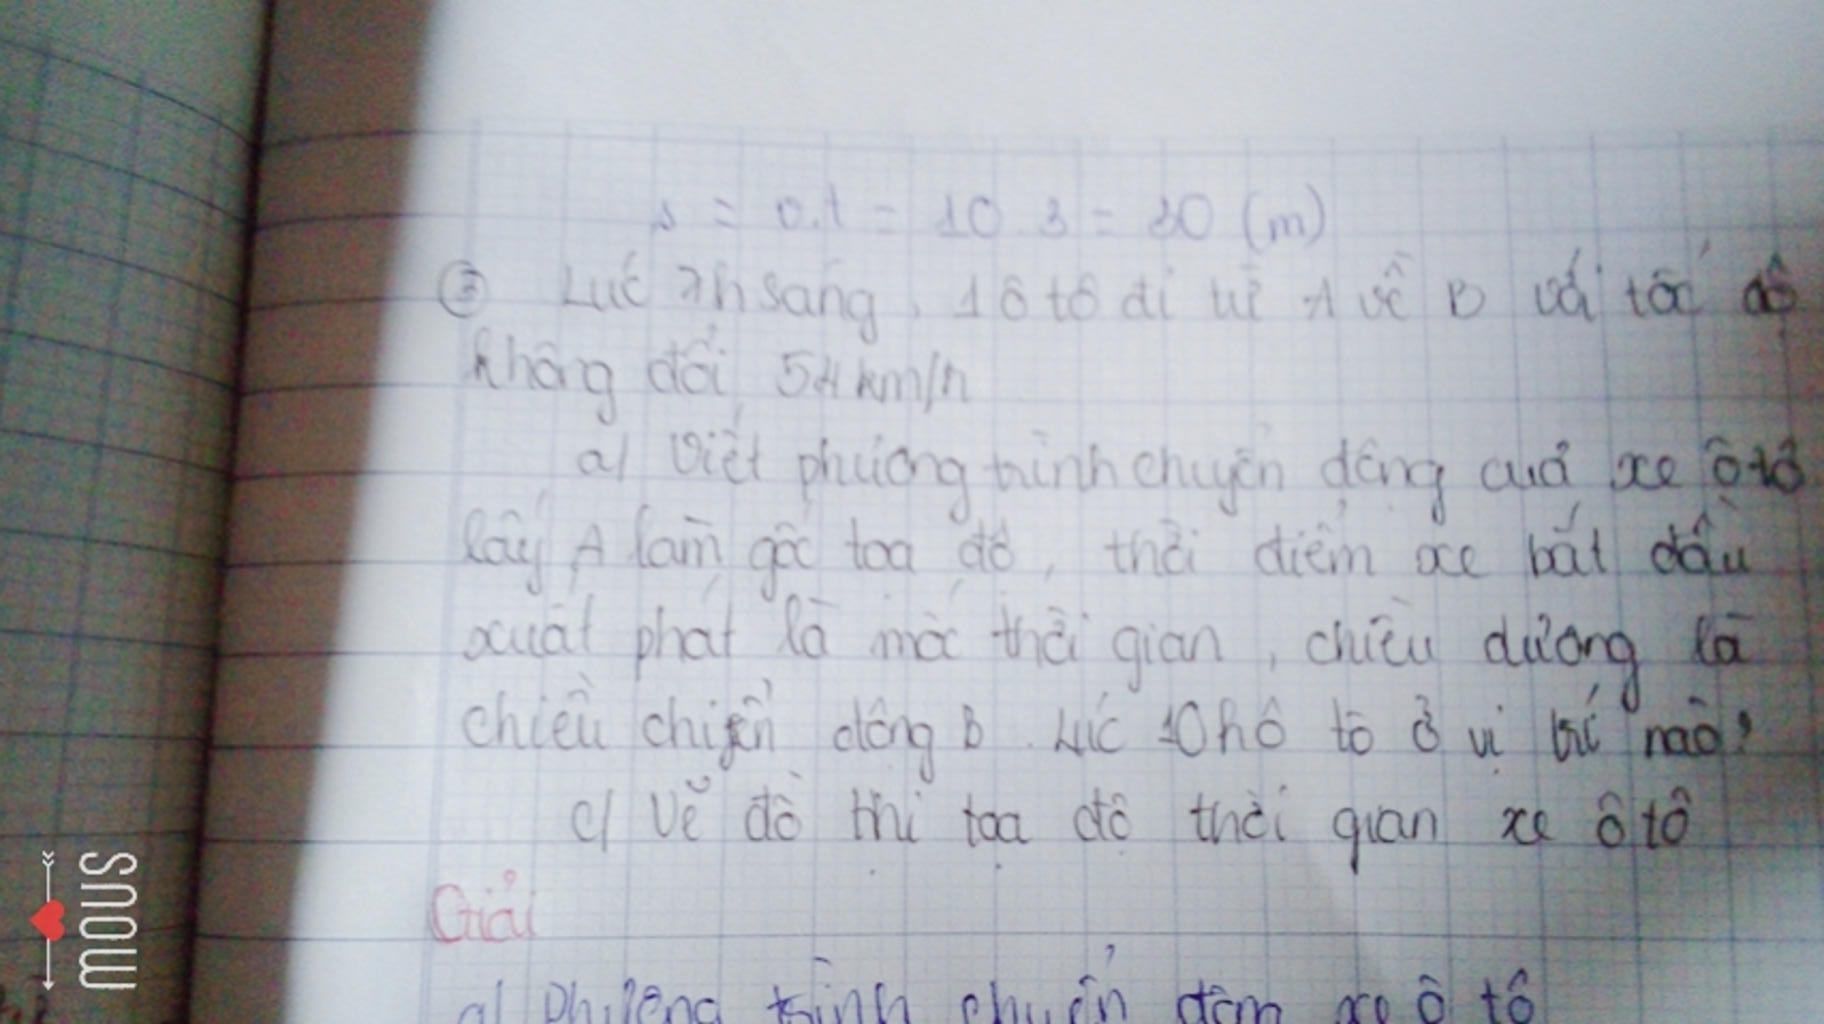 s = v.t = 10.3 = 30 (m)
③ Lúc 7h sáng, 1 ô tô đi từ A về B với tốc độ
không đổi 54 km/h
a) Viết phương trình chuyển động của xe ô tô
lấy A làm gốc toạ độ, thời điểm xe bắt đầu
xuất phát là mốc thời gian, chiều dương là
chiều chuyển động B. Lúc 10h ô tô ở vị trí nào?
c) Vẽ đồ thị toạ độ thời gian xe ô tô
Giải
a) Phương trình chuyển đôm xe ô tô
SNOW